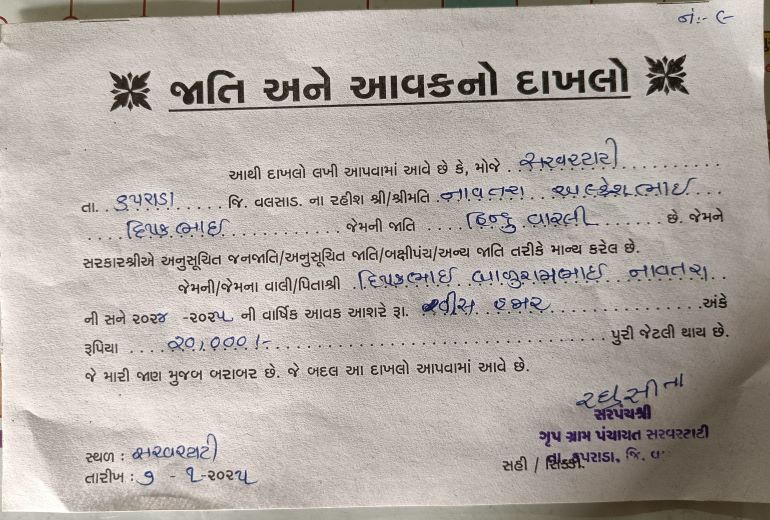 નં:- ૯
જાતિ અને આવકનો દાખલો
આથી દાખલો લખી આપવામાં આવે છે કે, મોજે . . સરવરટાટી . . . . . . . . . .
તા. . કપરાડા . . . . . . જિ. વલસાડ. ના રહીશ શ્રી/શ્રીમતિ . નાવતરા અલ્કેશભાઈ . . .
. . . . દિપકભાઈ . . . . . . . . . . . . જેમની જાતિ . . . . હિન્દુ વારલી . . . . . . . છે. જેમને
સરકારશ્રીએ અનુસૂચિત જનજાતિ/અનુસૂચિત જાતિ/બક્ષીપંચ/અન્ય જાતિ તરીકે માન્ય કરેલ છે.
જેમની/જેમના વાલી/પિતાશ્રી . દિપકભાઈ બાળુરામભાઈ નાવતરા . .
ની સને ૨૦૨૪ -૨૦૨૫ ની વાર્ષિક આવક આશરે રૂા. વીસ હજાર . . . . . . . . . . . . . . અંકે
રૂપિયા . . . . ૨૦,૦૦૦/- . . . . . . . . . . . . . . . . . . . . . . . . . . . . . . પુરી જેટલી થાય છે.
જે મારી જાણ મુજબ બરાબર છે. જે બદલ આ દાખલો આપવામાં આવે છે.
સરપંચશ્રી
ગૃપ ગ્રામ પંચાયત સરવરટાટી
તા. કપરાડા, જિ. વ
સ્થળ : સરવરટાટી
સહી / સિક્કો
તારીખ : ૭ - ૧-૨૦૨૫